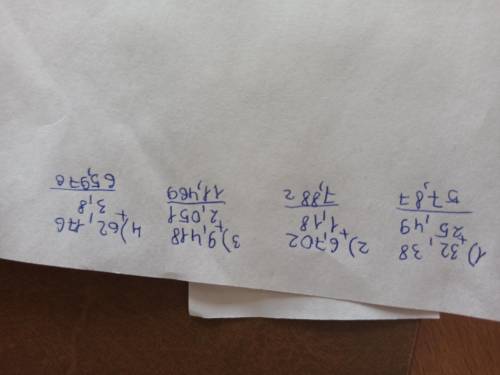 1) 32,38
+
25,49
57,87
2) 6,702
+
1,18
7,882
3) 9,418
+
2,051
11,469
4) 62,176
+
3,8
65,976